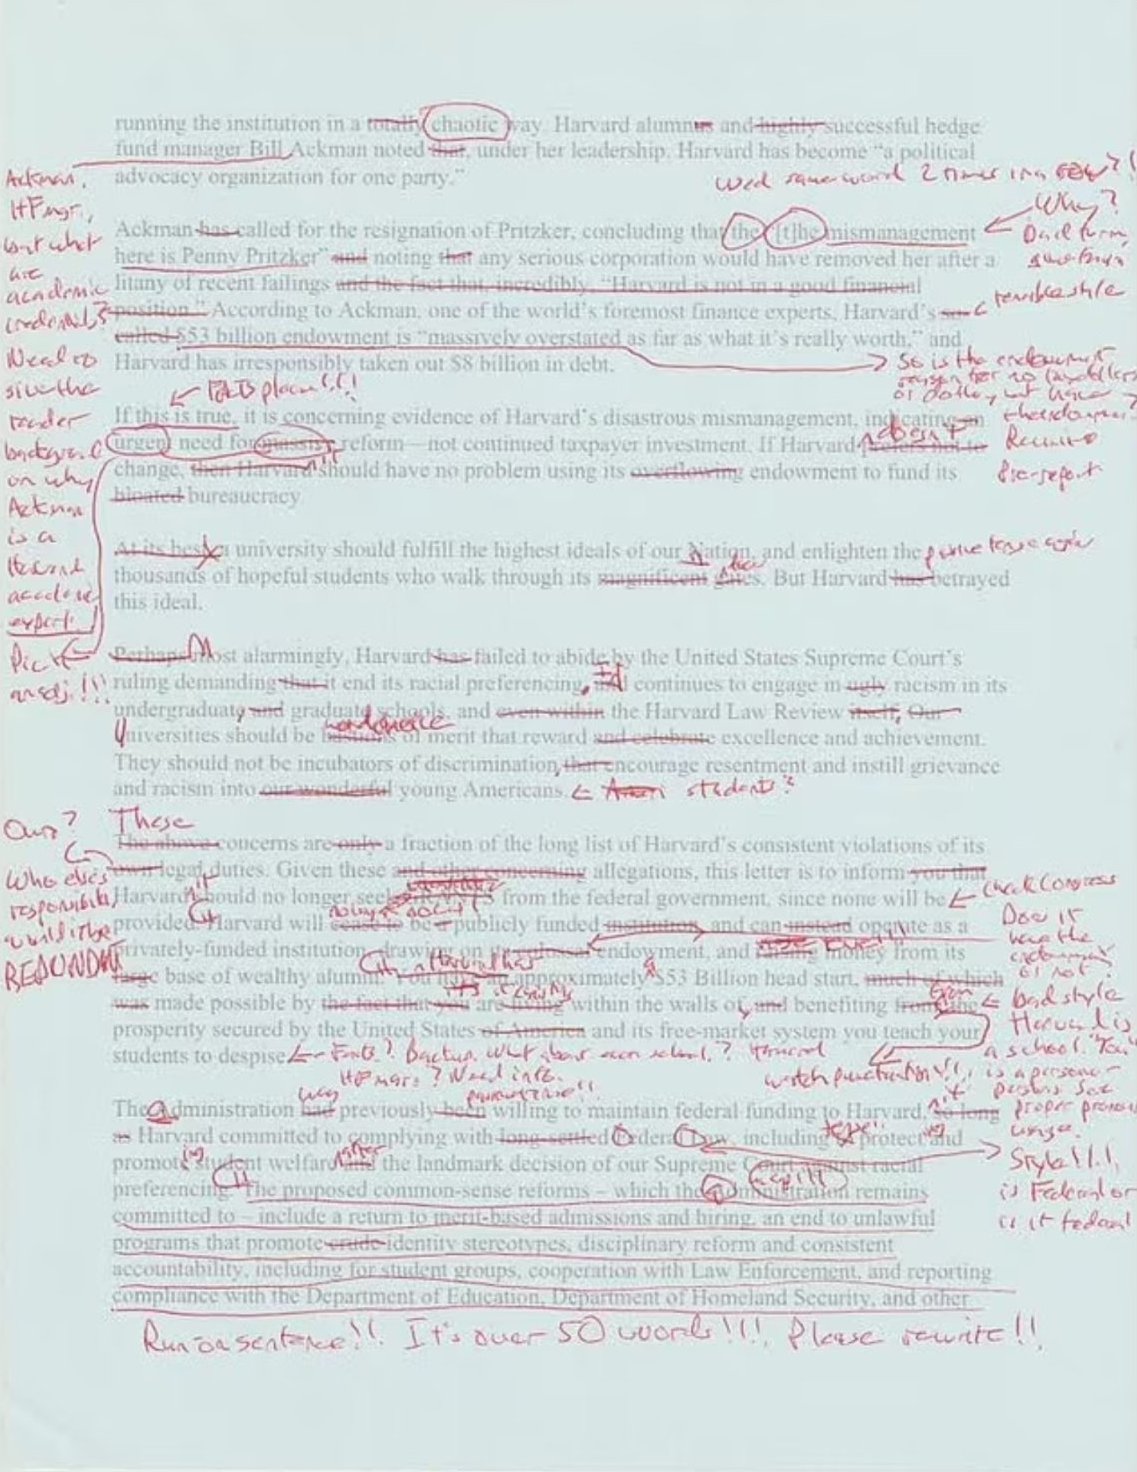 running the institution in a totally chaotic way. Harvard alumnus and highly successful hedge
fund manager Bill Ackman noted that, under her leadership, Harvard has become “a political
advocacy organization for one party.”
Used same word 2 times in a row?!
Ackman,
HF mgr.,
but what
are
academic
credentials?
Need to
give the
reader
background
on why
Ackman
is a
Harvard
academic
expert!
Pick
an adj.!!!
Why?
Ackman has called for the resignation of Pritzker, concluding that the “[t]he mismanagement
here is Penny Pritzker” and noting that any serious corporation would have removed her after a
litany of recent failings and the fact that, incredibly, “Harvard is not in a good financial
terrible style
position.” According to Ackman, one of the world’s foremost finance experts, Harvard’s so-
called $53 billion endowment is “massively overstated as far as what it’s really worth,” and
Harvard has irresponsibly taken out $8 billion in debt.
So is the endowment
or do they not have
the endowment?
FACTS please!!!
If this is true, it is concerning evidence of Harvard’s disastrous mismanagement, indicating an
urgent need for massive reform—not continued taxpayer investment. If Harvard prefers not to
change, then Harvard should have no problem using its overflowing endowment to fund its
bloated bureaucracy.
At its best, a university should fulfill the highest ideals of our Nation, and enlighten the
thousands of hopeful students who walk through its magnificent gates. But Harvard has betrayed
this ideal.
Perhaps most alarmingly, Harvard has failed to abide by the United States Supreme Court’s
ruling demanding that it end its racial preferencing, and continues to engage in ugly racism in its
undergraduate and graduate schools, and even within the Harvard Law Review itself. Our
universities should be bastions of merit that reward and celebrate excellence and achievement.
They should not be incubators of discrimination, that encourage resentment and instill grievance
and racism into our wonderful young Americans. students?
Our?
Who else's
responsibility
would it be
REDUNDANT
These
The above concerns are only a fraction of the long list of Harvard’s consistent violations of its
own legal duties. Given these and other concerning allegations, this letter is to inform you that
Harvard should no longer seek grants from the federal government, since none will be
Check Congress
provided. Harvard will cease to be a publicly funded institution, and can instead operate as a
Does it
have the
endowment
or not?
privately-funded institution, drawing on its colossal endowment, and raising money from its
large base of wealthy alumni. You have an approximately $53 Billion head start, much of which
was made possible by the fact that you are living within the walls of, and benefiting from, the
bad style
prosperity secured by the United States of America and its free-market system you teach your
students to despise.
Harvard is
a school. "You"
is a person
watch punctuation!!!
HF mgrs? Need info.
The Administration had previously been willing to maintain federal funding to Harvard, so long
as Harvard committed to complying with long-settled Federal Law, including to protect and
promote student welfare and the landmark decision of our Supreme Court against racial
Style!!!
is Federal or
is it federal
preferencing. The proposed common-sense reforms – which the Administration remains
committed to – include a return to merit-based admissions and hiring, an end to unlawful
programs that promote crude identity stereotypes, disciplinary reform and consistent
accountability, including for student groups, cooperation with Law Enforcement, and reporting
compliance with the Department of Education, Department of Homeland Security, and other
Run on sentence!!. It's over 50 words!!!, Please rewrite!!